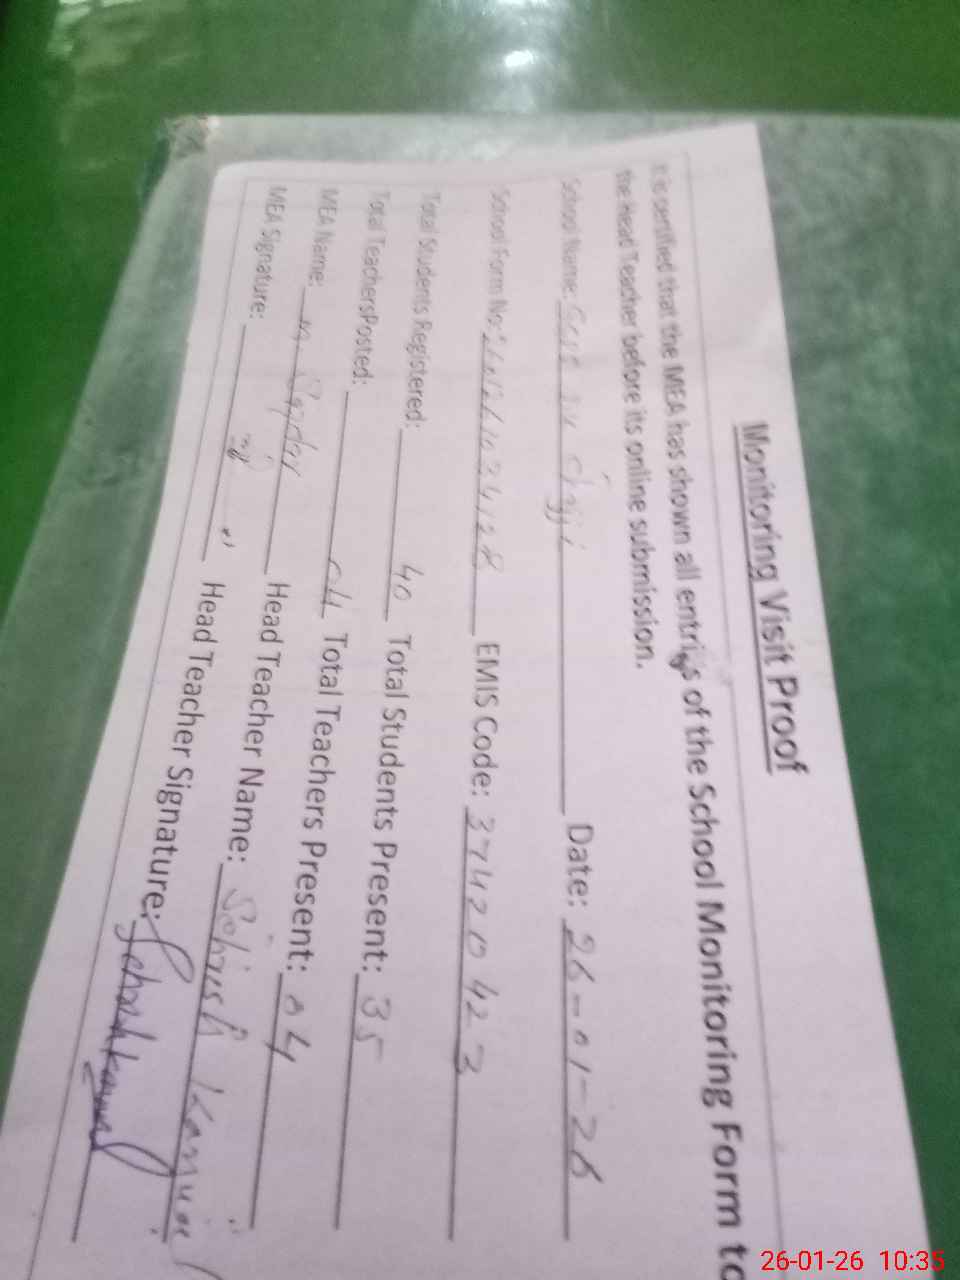 Monitoring Visit Proof
It is certified that the MEA has shown all entries of the School Monitoring Form to
the Head Teacher before its online submission.
School Name: Date: 26-01-26
School Form No: EMIS Code: 37420423
Total Students Registered: 40 Total Students Present: 35
Total TeachersPosted: 04 Total Teachers Present: 04
MEA Name: M. Head Teacher Name:
MEA Signature: Head Teacher Signature:
26-01-26 10:35